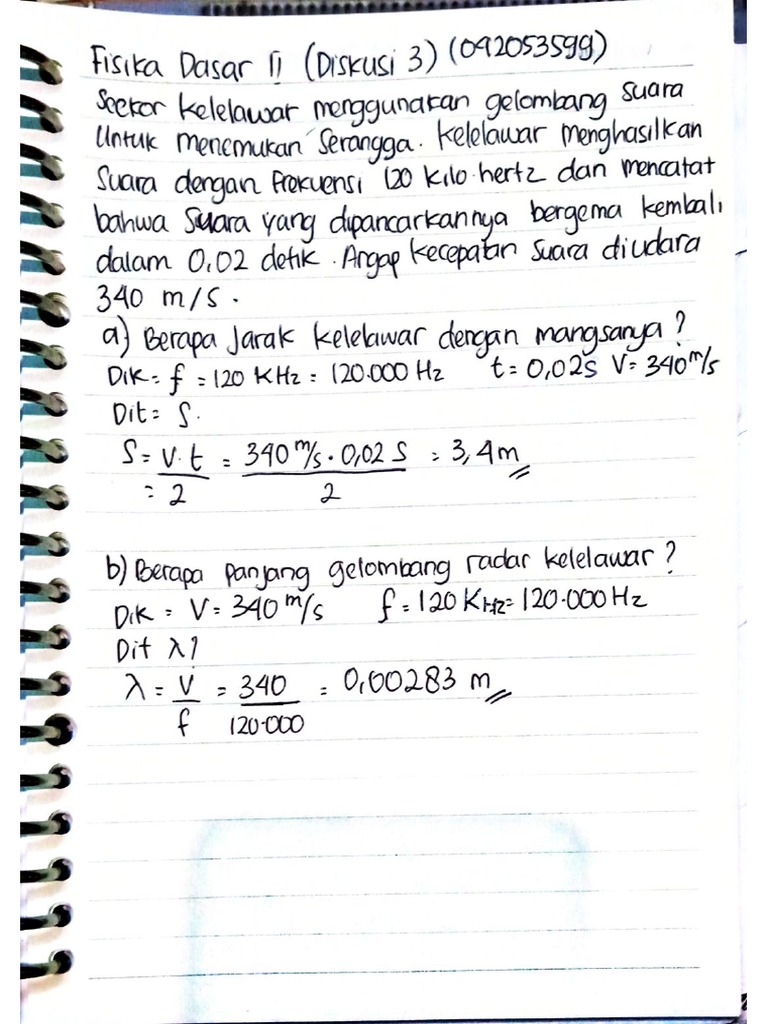 Fisika Dasar II (Diskusi 3) (042053599)
Seekor kelelawar menggunakan gelombang suara
Untuk menemukan serangga. Kelelawar menghasilkan
Suara dengan Frekuensi 120 kilo hertz dan mencatat
bahwa Suara yang dipancarkannya bergema kembali
dalam 0,02 detik. Angap kecepatan suara diudara
340 m/s.
a) Berapa Jarak kelelawar dengan mangsanya?
Dik = f = 120 KHz = 120.000 Hz t = 0,02s V = 340 m/s
Dit = S.
S = V.t = 340 m/s . 0,02 S = 3,4 m
= 2 2
b) Berapa panjang gelombang radar kelelawar?
Dik = V = 340 m/s f = 120 KHz = 120.000 Hz
Dit λ?
λ = V = 340 = 0,00283 m
f 120.000